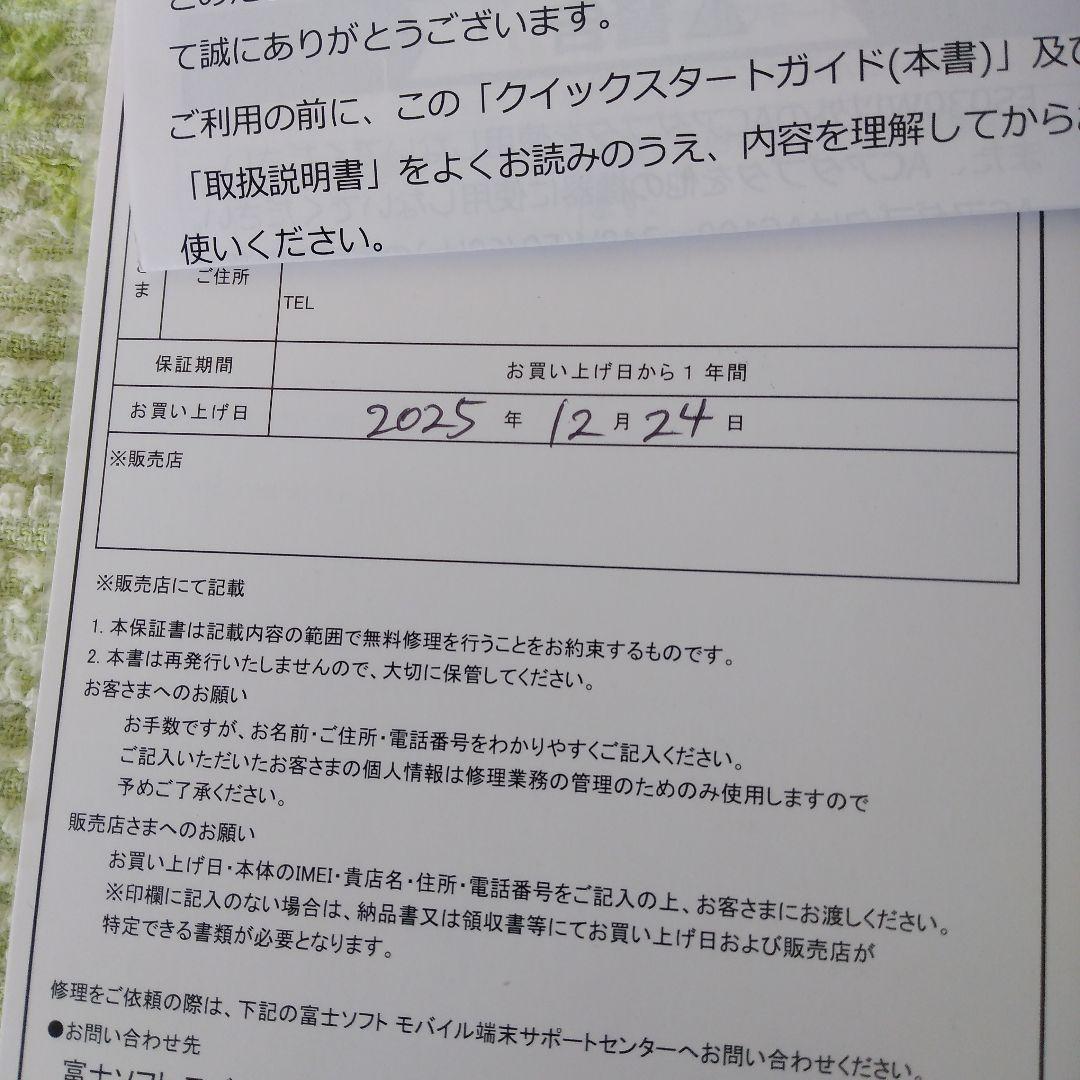 て誠にありがとうございます。
ご利用の前に、この「クイックスタートガイド(本書)」及び
「取扱説明書」をよくお読みのうえ、内容を理解してから
使いください。
ま
ご住所
TEL
保証期間
お買い上げ日から1年間
お買い上げ日
2025年12月24日
※販売店
※販売店にて記載
1. 本保証書は記載内容の範囲で無料修理を行うことをお約束するものです。
2. 本書は再発行いたしませんので、大切に保管してください。
お客さまへのお願い
お手数ですが、お名前・ご住所・電話番号をわかりやすくご記入ください。
ご記入いただいたお客さまの個人情報は修理業務の管理のためのみ使用しますので
予めご了承ください。
販売店さまへのお願い
お買い上げ日・本体のIMEI・貴店名・住所・電話番号をご記入の上、お客さまにお渡しください。
※印欄に記入のない場合は、納品書又は領収書等にてお買い上げ日および販売店が
特定できる書類が必要となります。
修理をご依頼の際は、下記の富士ソフト モバイル端末サポートセンターへお問い合わせください。
●お問い合わせ先
富士ソフト